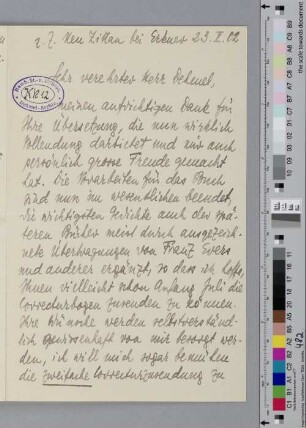 z. Z. Neu Zittau bei Erkner 23. V. 02
Sehr verehrter Herr Schmel,
meinen aufrichtigen Dank für
Ihre Übersetzung, die nun wirklich
Vollendung darbietet und mir auch
persönlich grosse Freude gemacht
hat. Die Vorarbeiten für das Buch
sind nun im wesentlichen beendet,
die wichtigsten Gedichte auch der spä-
teren Bücher meist durch ausgezeich-
nete Übertragungen von Franz Evers
und anderer ergänzt, so dass ich hoffe,
Ihnen vielleicht schon Anfang Juli die
Correcturbogen zusenden zu können.
Ihre Wünsche werden selbstverständ-
lich gewissenhaft von mir besorgt wer-
den, ich will mich sogar bemühen
die zweifache Correcturzusendung zu
482
the scale towards document